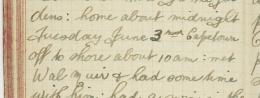 dens: home about midnight
Tuesday June 3 Capetown
off to shore about 10am: met
Wal Muir & had some time
with him: had a